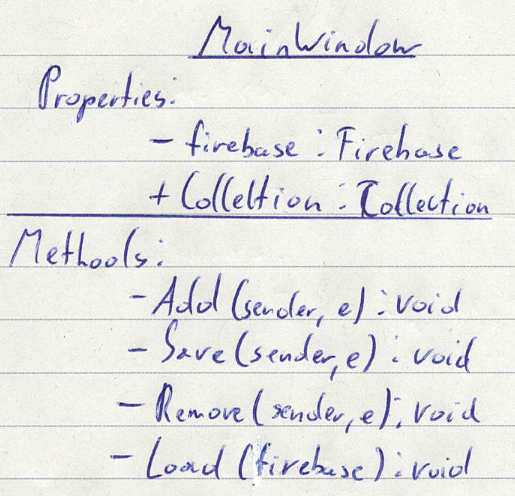 MainWindow
Properties:
- firebase : Firebase
+ Collection : Collection
Methods:
- Add (sender, e) : void
- Save (sender, e) : void
- Remove (sender, e) : void
- Load (firebase) : void